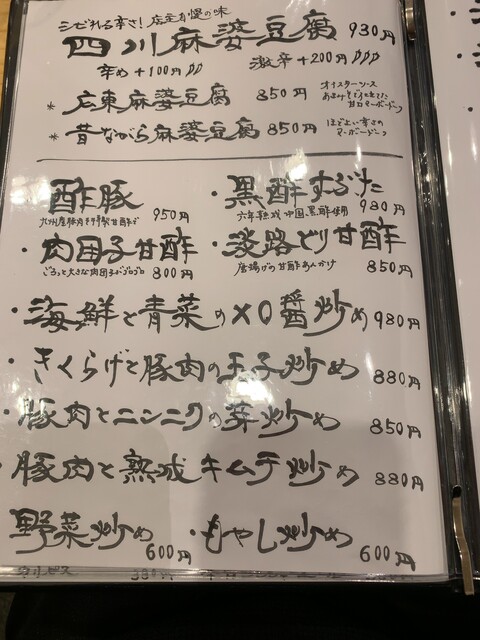 シビれる辛さ! 店主自慢の味
四川麻婆豆腐 930円
辛め+100円 激辛+200円
* 広東麻婆豆腐 850円 オイスターソース
* 昔ながら麻婆豆腐 850円 ほどよい辛さの
マーボードーフ
酢豚 950円
・黒酢すぶた 980円
六年熟成 中国黒酢使用
・肉団子甘酢 800円
ごろっと大きな肉団子がゴロゴロ
・淡路どり甘酢 850円
唐揚げの甘酢あんかけ
・海鮮と青菜のXO醤炒め 980円
・きくらげと豚肉の玉子炒め 880円
・豚肉とニンニクの芽炒め 850円
・豚肉と熟成キムチ炒め 880円
野菜炒め 600円
・もやし炒め 600円